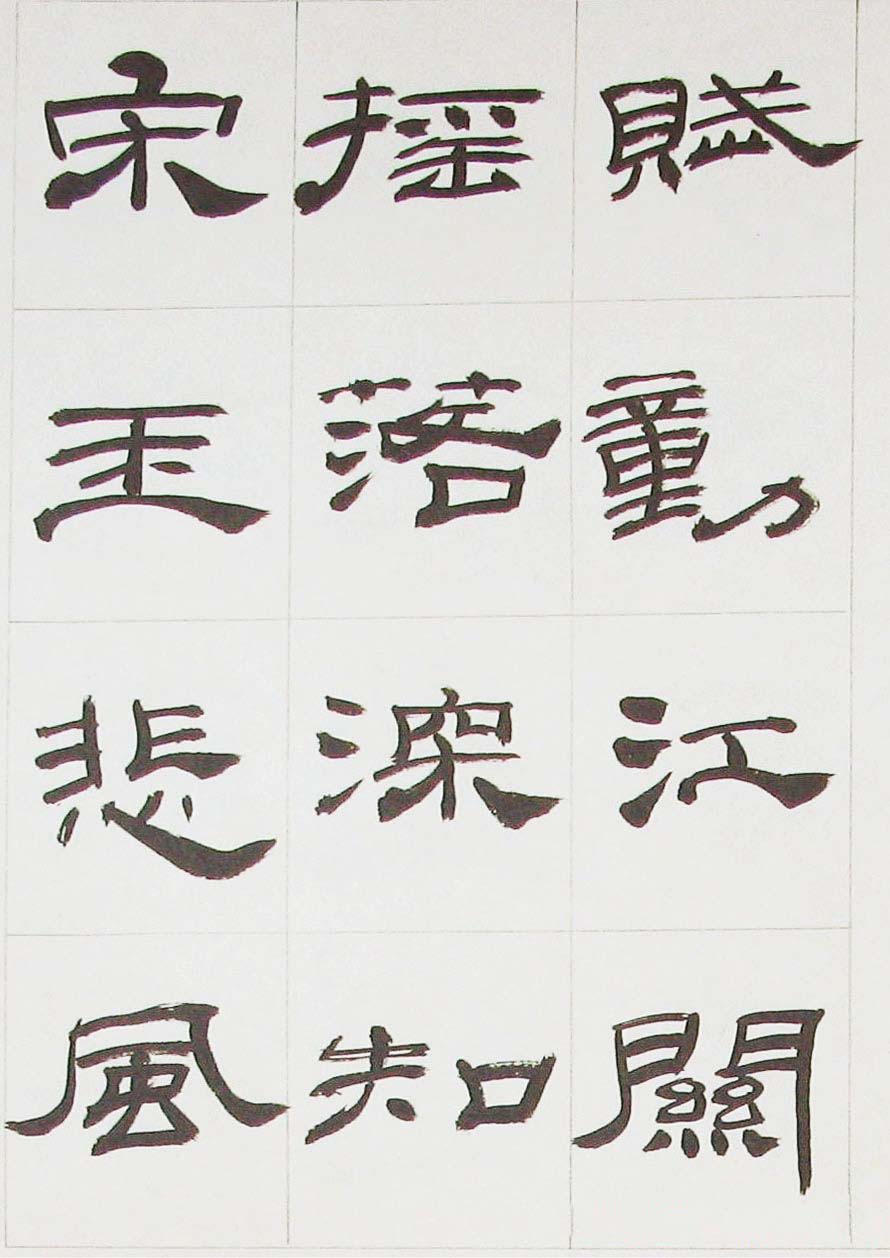 賦動江關
摇落深知
宋玉悲風